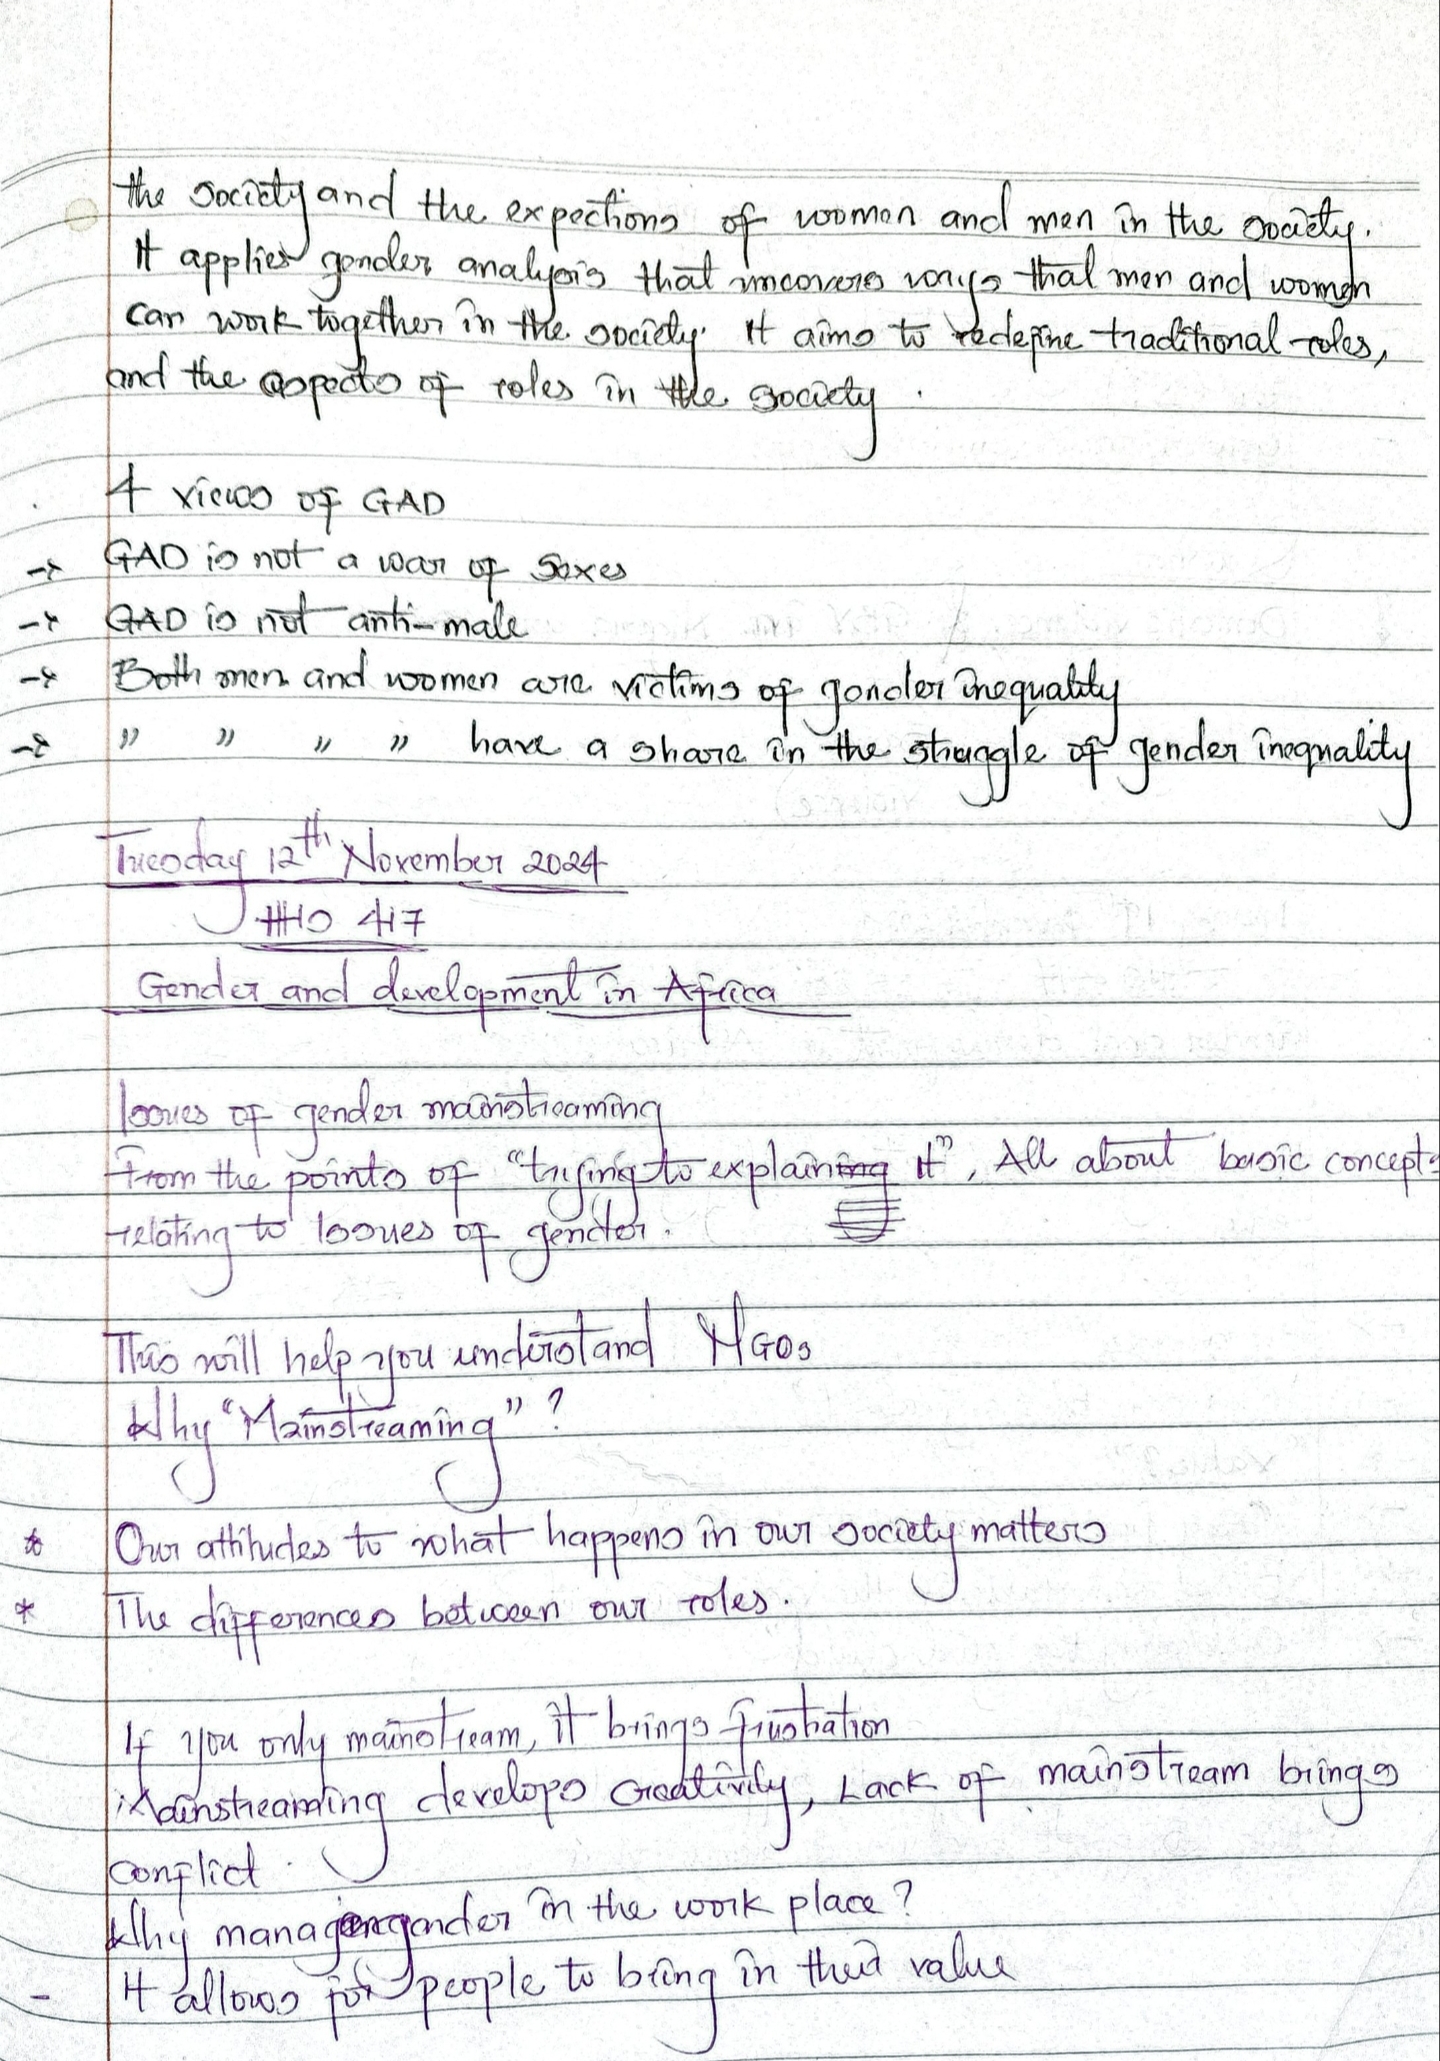 the society and the expections of women and men in the society.
It applies gender analysis that uncovers ways that men and women
can work together in the society. It aims to redefine traditional roles,
and the aspects of roles in the society.
4 views of GAD
→ GAD is not a war of sexes
→ GAD is not anti-male
→ Both men and women are victims of gender inequality
→ " " " " have a share in the struggle of gender inequality
Tuesday 12th November 2024
HIS 417
Gender and development in Africa
Issues of gender mainstreaming
From the points of "trying to explain it", All about basic concepts
relating to Issues of gender.
This will help you understand NGOs
Why "Mainstreaming"?
* Our attitudes to what happens in our society matters
* The differences between our roles.
If you only mainstream, it brings frustration
Mainstreaming develops creativity, Lack of mainstream brings
conflict.
Why manage gender in the work place?
- It allows for people to bring in their value